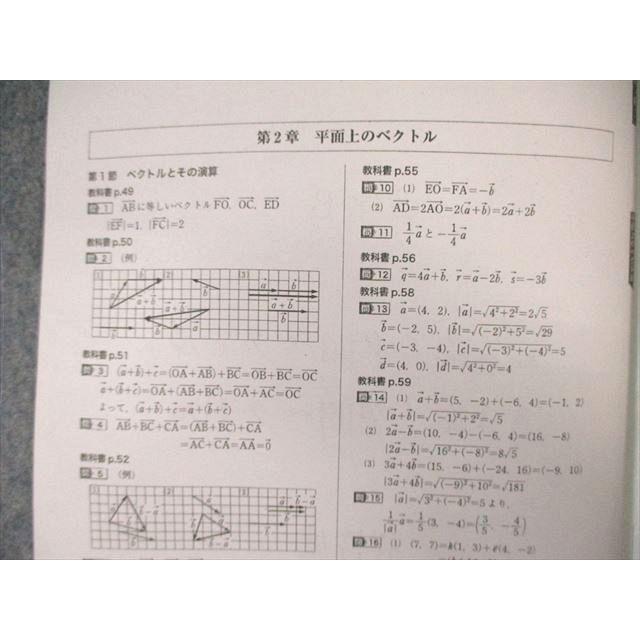 第2章 平面上のベクトル
第1節 ベクトルとその演算
教科書 p.49
問 1 AB→に等しいベクトル FO→, OC→, ED→
|EF→|=1, |FC→|=2
教科書 p.50
問 2 (例)
(1) (2) (3)
a→ b→ a→+b→
教科書 p.51
問 3 (a→+b→)+c→=(OA→+AB→)+BC→=OB→+BC→=OC→
a→+(b→+c→)=OA→+(AB→+BC→)=OA→+AC→=OC→
よって, (a→+b→)+c→=a→+(b→+c→)
問 4 AB→+BC→+CA→=(AB→+BC→)+CA→
=AC→+CA→=AA→=0→
教科書 p.52
問 5 (例)
(1) (2) (3)
a→ b→ b→-a→
教科書 p.55
問 10 (1) EO→=FA→=-b→
(2) AD→=2AO→=2(a→+b→)=2a→+2b→
問 11 1/4 a→ と -1/4 a→
教科書 p.56
問 12 q→=4a→+b→, r→=a→-2b→, s→=-3b→
教科書 p.58
問 13 a→=(4, 2), |a→|=√(4²+2²)=2√5
b→=(-2, 5), |b→|=√((-2)²+5²)=√29
c→=(-3, -4), |c→|=√((-3)²+(-4)²)=5
d→=(4, 0), |d→|=√(4²+0²)=4
教科書 p.59
問 14 (1) a→+b→=(5, -2)+(-6, 4)=(-1, 2)
|a→+b→|=√((-1)²+2²)=√5
(2) 2a→-b→=(10, -4)-(-6, 4)=(16, -8)
|2a→-b→|=√(16²+(-8)²)=8√5
(3) 3a→+4b→=(15, -6)+(-24, 16)=(-9, 10)
|3a→+4b→|=√((-9)²+10²)=√181
問 15 |a→|=√(3²+(-4)²)=5 より,
1/|a→| a→=1/5(3, -4)=(3/5, -4/5)
問 16 (1) (7, 7)=k(1, 3)+ℓ(4, -2)